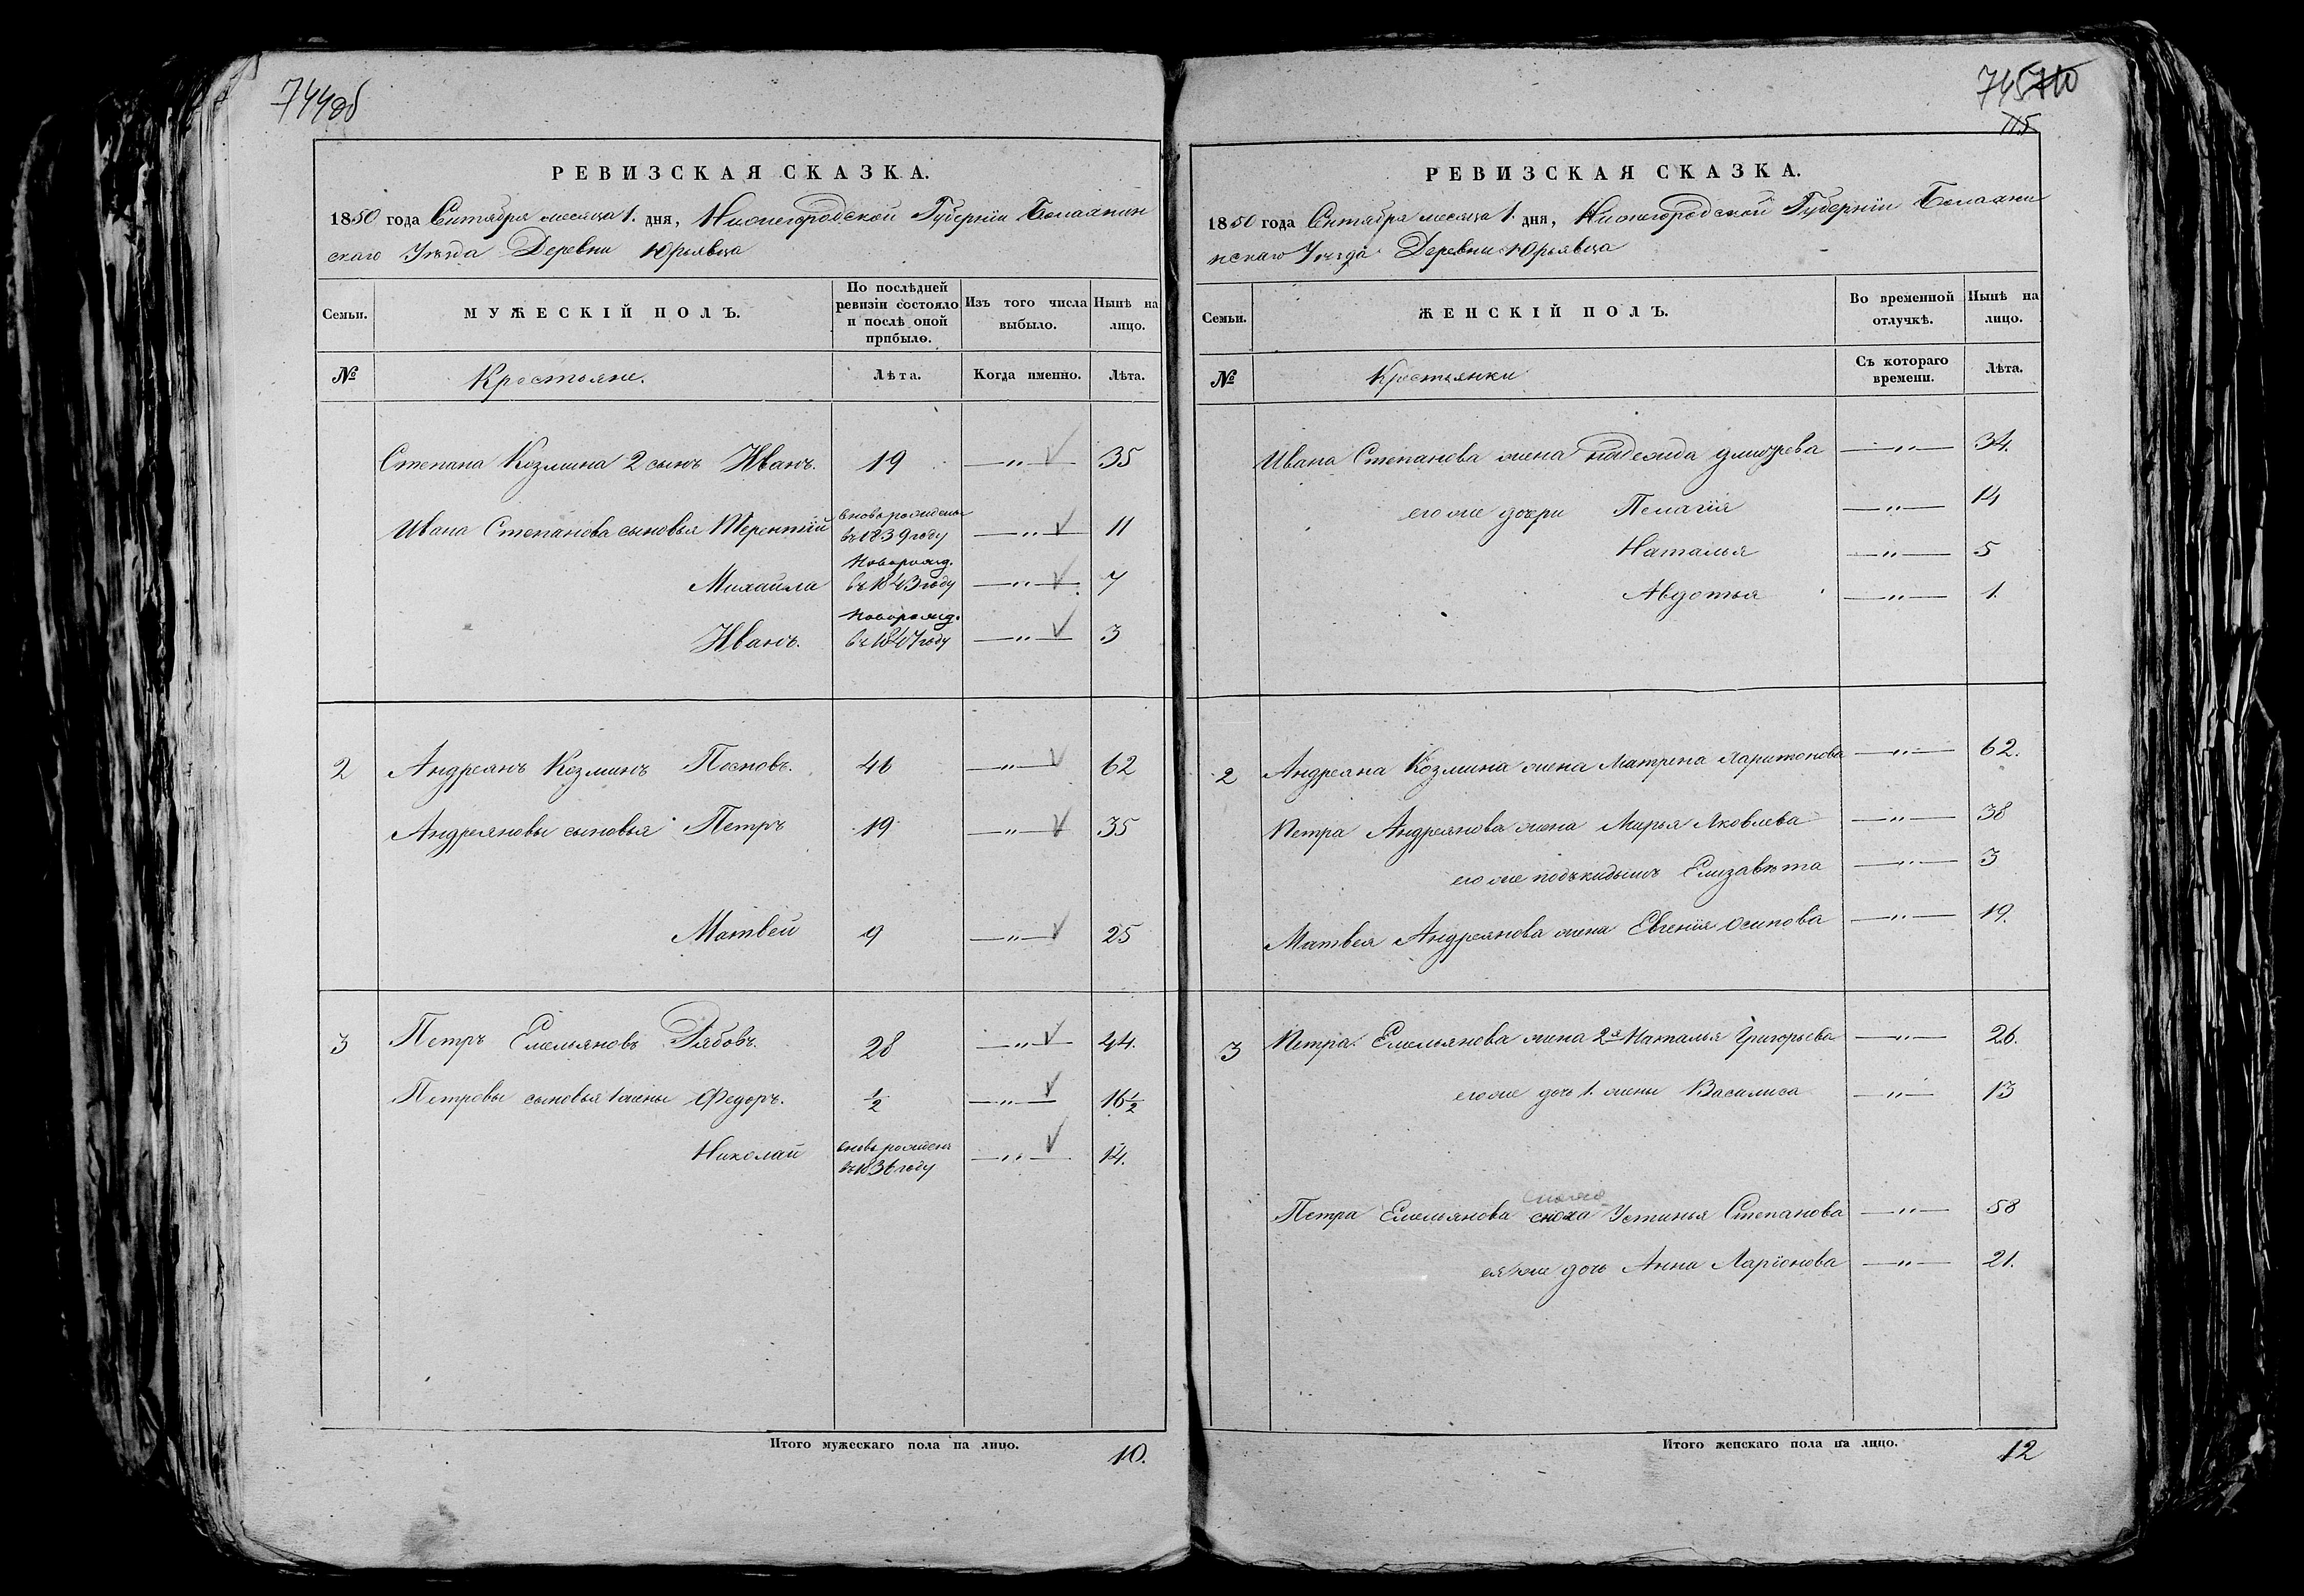 744об
РЕВИЗСКАЯ СКАЗКА.
1850 года Сентября месяца 1. дня, Нижегородской Губернiи Балахнин
скаго Уезда Деревни Юрьявца
Семьи.
МУЖЕСКІЙ ПОЛЪ.
По послѣдней
ревизіи состояло
и послѣ оной
прибыло.
Изъ того числа
выбыло.
Нынѣ на
лицо.
№
Крестьяне.
Лѣта.
Когда именно.
Лѣта.
Степана Козмина 2 сынъ Иванъ. 19 —"— 35
Ивана Степанова сыновья Терентiй вновь рожденъ
въ 1839 году —"— 11
Михайла Новорожд.
въ 1843 году —"— 7
Иванъ. Новорожд.
въ 1847 году —"— 3
2 Андреянъ Козминъ 46 —"— 62
Андреяновы сыновья Петръ 19 —"— 35
Матвей 9 —"— 25
3 Петръ Емельяновъ Рябовъ. 28 —"— 44.
Петровы сыновья 1 жены Федоръ. ½ —"— 16½
Николай вновь рожденъ
въ 1836 году —"— 14.
Итого мужескаго пола на лицо. 10.
745 710
115
РЕВИЗСКАЯ СКАЗКА.
1850 года Сентября месяца 1. дня, Нижегородской Губернiи Балахни
нскаго Уезда Деревни Юрьявца
Семьи.
ЖЕНСКІЙ ПОЛЪ.
Во временной
отлучкѣ.
Нынѣ на
лицо.
№
Крестьянки
Съ котораго
времени.
Лѣта.
Ивана Степанова жена Надежда —"— 34.
его же дочери Пелагiя —"— 14
Наталья —"— 5
Авдотья —"— 1.
2 Андреяна Козмина жена Матрена Харитонова —"— 62.
Петра Андреянова жена Марья Яковлева —"— 38
его же подъкидышъ Елизавѣта —"— 3
Матвея Андреянова жена Евгенiя Осипова —"— 19.
3 Петра Емельянова жена 2я Наталья Григорьева —"— 26.
его же дочь 1. жены Василиса —"— 13
Петра Емельянова сноха Устинья Степанова —"— 58
ея же дочь Анна Ларiонова —"— 21.
Итого женскаго пола на лицо. 12